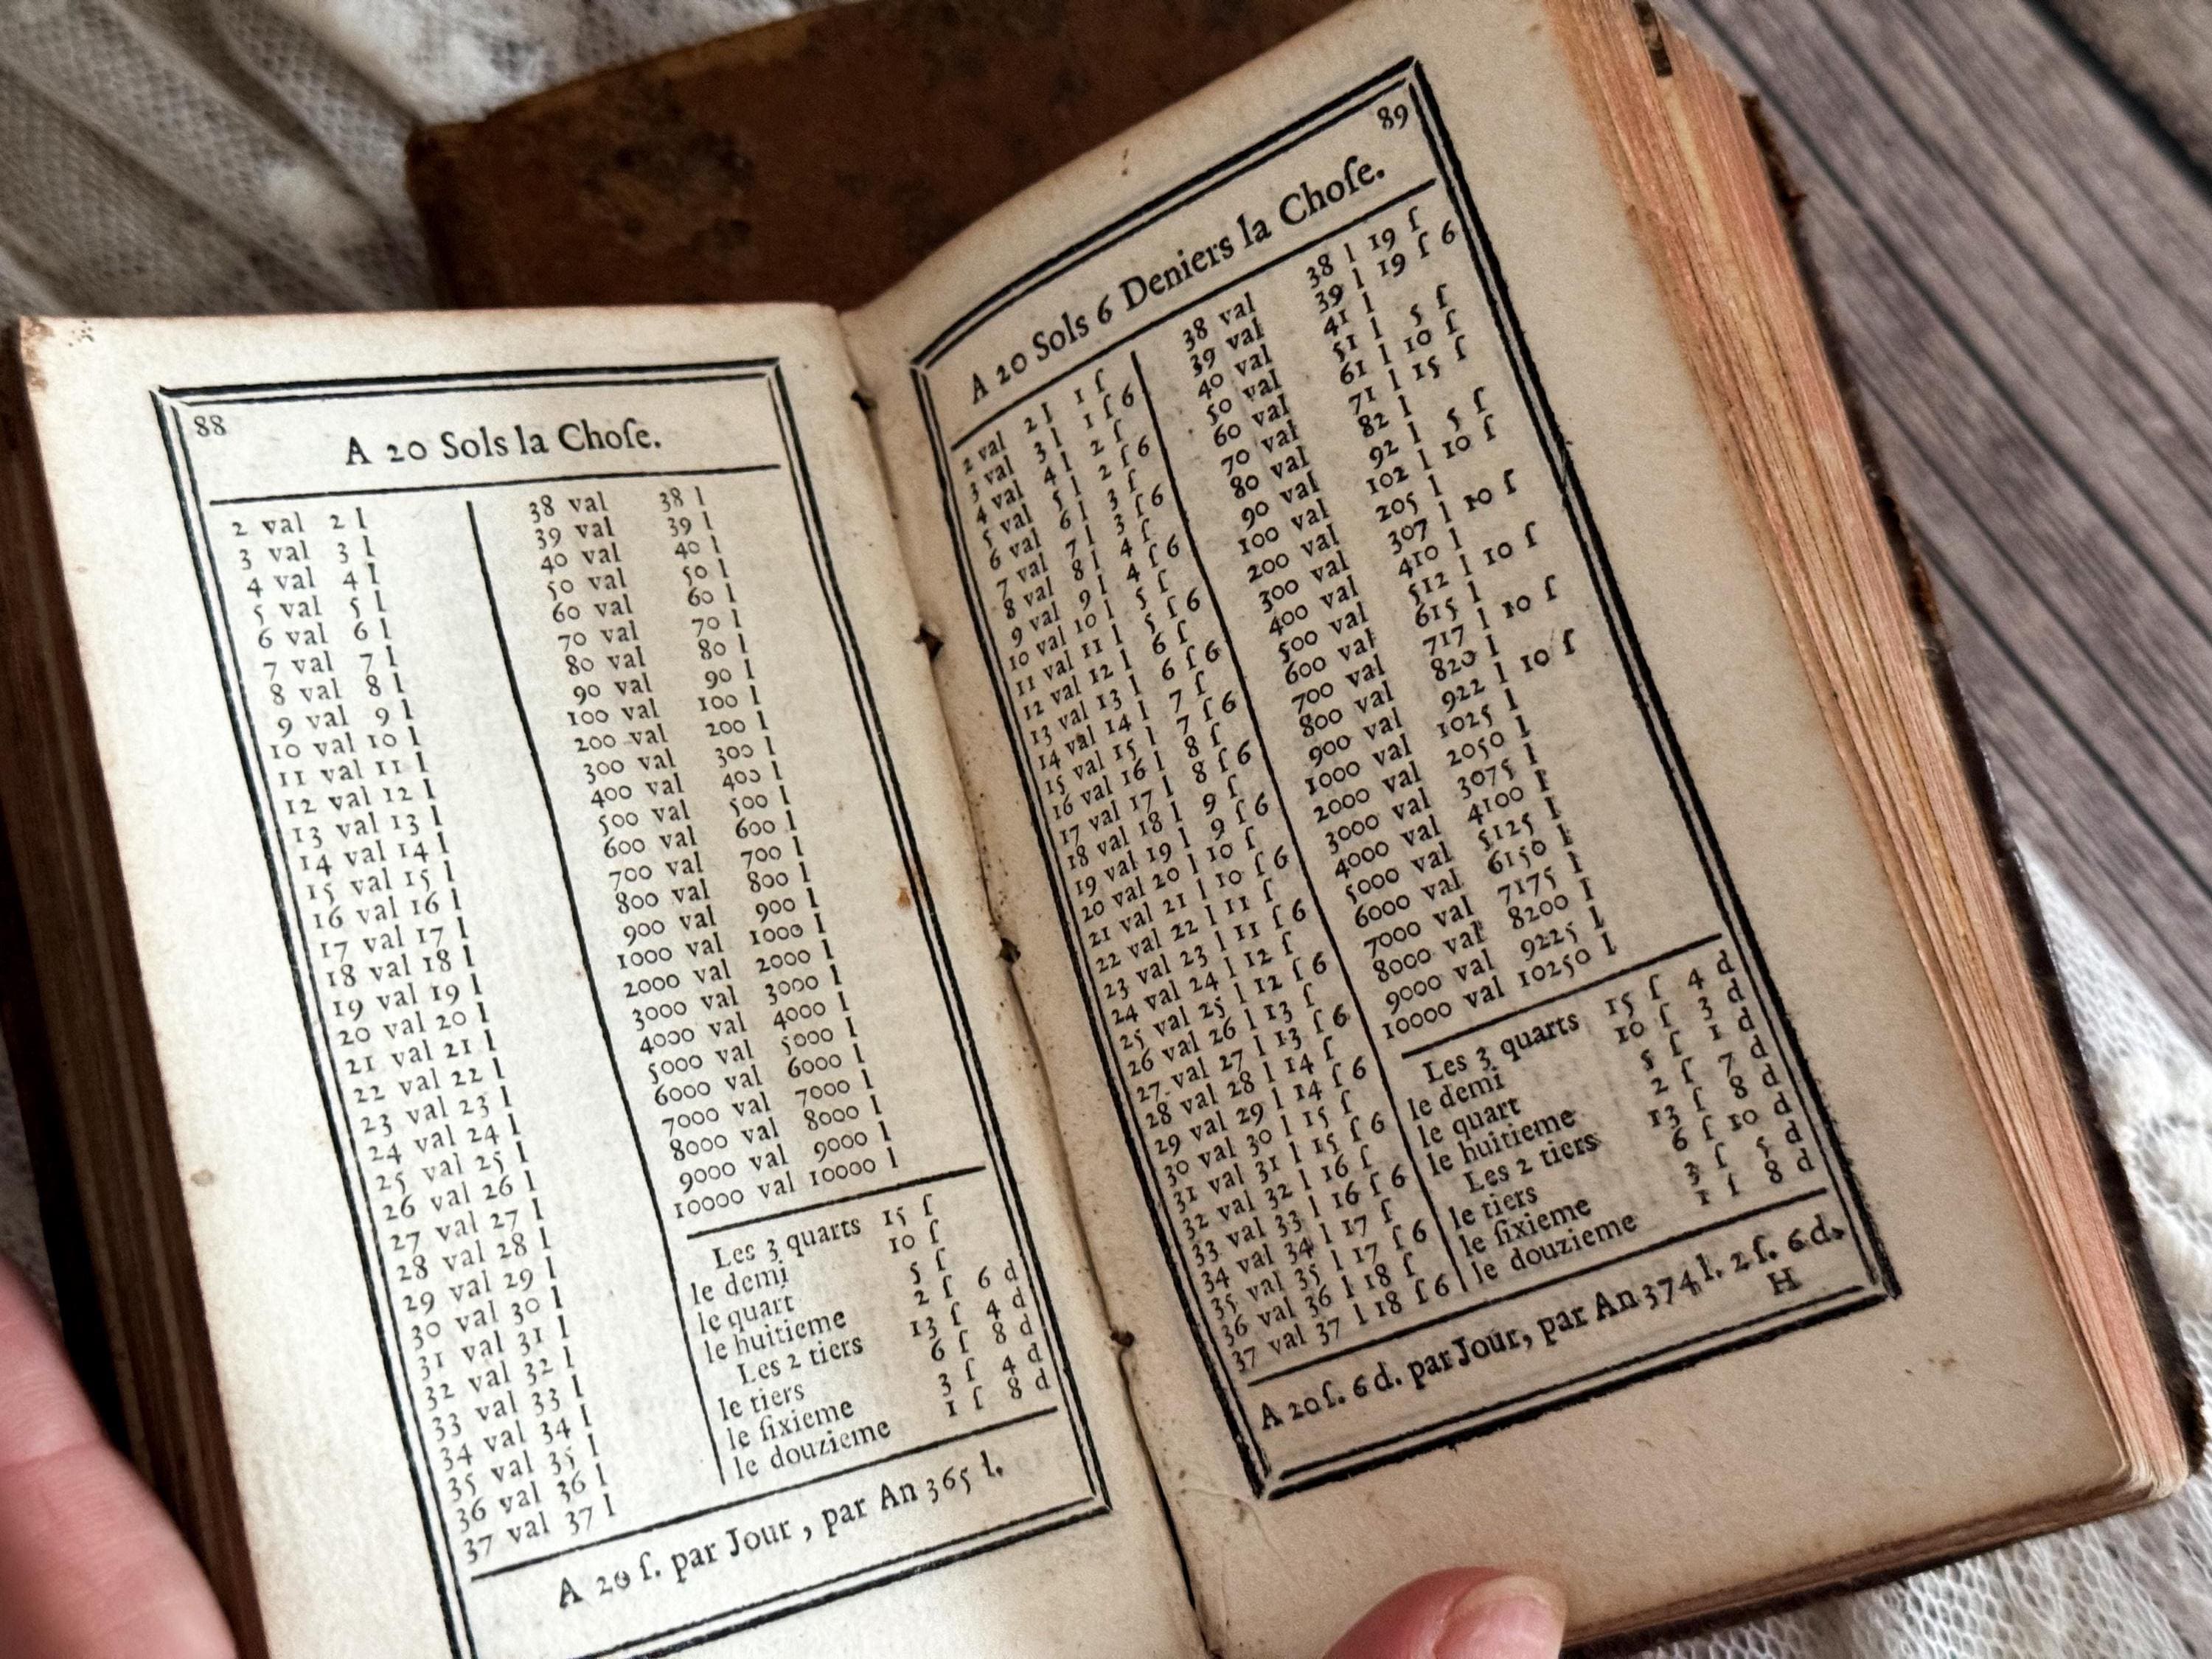 88
A 20 Sols la Choſe.
2 val 2 l
3 val 3 l
4 val 4 l
5 val 5 l
6 val 6 l
7 val 7 l
8 val 8 l
9 val 9 l
10 val 10 l
11 val 11 l
12 val 12 l
13 val 13 l
14 val 14 l
15 val 15 l
16 val 16 l
17 val 17 l
18 val 18 l
19 val 19 l
20 val 20 l
21 val 21 l
22 val 22 l
23 val 23 l
24 val 24 l
25 val 25 l
26 val 26 l
27 val 27 l
28 val 28 l
29 val 29 l
30 val 30 l
31 val 31 l
32 val 32 l
33 val 33 l
34 val 34 l
35 val 35 l
36 val 36 l
37 val 37 l
38 val 38 l
39 val 39 l
40 val 40 l
50 val 50 l
60 val 60 l
70 val 70 l
80 val 80 l
90 val 90 l
100 val 100 l
200 val 200 l
300 val 300 l
400 val 400 l
500 val 500 l
600 val 600 l
700 val 700 l
800 val 800 l
900 val 900 l
1000 val 1000 l
2000 val 2000 l
3000 val 3000 l
4000 val 4000 l
5000 val 5000 l
6000 val 6000 l
7000 val 7000 l
8000 val 8000 l
9000 val 9000 l
10000 val 10000 l
Les 3 quarts 15 ſ
le demi 10 ſ
le quart 5 ſ
le huitieme 2 ſ 6 d
Les 2 tiers 13 ſ 4 d
le tiers 6 ſ 8 d
le ſixieme 3 ſ 4 d
le douzieme 1 ſ 8 d
A 20 ſ. par Jour, par An 365 l.
89
A 20 Sols 6 Deniers la Choſe.
2 val 2 l 1 ſ
3 val 3 l 1 ſ 6
4 val 4 l 2 ſ
5 val 5 l 2 ſ 6
6 val 6 l 3 ſ
7 val 7 l 3 ſ 6
8 val 8 l 4 ſ
9 val 9 l 4 ſ 6
10 val 10 l 5 ſ
11 val 11 l 5 ſ 6
12 val 12 l 6 ſ
13 val 13 l 6 ſ 6
14 val 14 l 7 ſ
15 val 15 l 7 ſ 6
16 val 16 l 8 ſ
17 val 17 l 8 ſ 6
18 val 18 l 9 ſ
19 val 19 l 9 ſ 6
20 val 20 l 10 ſ
21 val 21 l 10 ſ 6
22 val 22 l 11 ſ
23 val 23 l 11 ſ 6
24 val 24 l 12 ſ
25 val 25 l 12 ſ 6
26 val 26 l 13 ſ
27 val 27 l 13 ſ 6
28 val 28 l 14 ſ
29 val 29 l 14 ſ 6
30 val 30 l 15 ſ
31 val 31 l 15 ſ 6
32 val 32 l 16 ſ
33 val 33 l 16 ſ 6
34 val 34 l 17 ſ
35 val 35 l 17 ſ 6
36 val 36 l 18 ſ
37 val 37 l 18 ſ 6
38 val 38 l 19 ſ
39 val 39 l 19 ſ 6
40 val 41 l
50 val 51 l 5 ſ
60 val 61 l 10 ſ
70 val 71 l 15 ſ
80 val 82 l
90 val 92 l 5 ſ
100 val 102 l 10 ſ
200 val 205 l
300 val 307 l 10 ſ
400 val 410 l
500 val 512 l 10 ſ
600 val 615 l
700 val 717 l 10 ſ
800 val 820 l
900 val 922 l 10 ſ
1000 val 1025 l
2000 val 2050 l
3000 val 3075 l
4000 val 4100 l
5000 val 5125 l
6000 val 6150 l
7000 val 7175 l
8000 val 8200 l
9000 val 9225 l
10000 val 10250 l
Les 3 quarts 15 ſ 4 d
le demi 10 ſ 3 d
le quart 5 ſ 1 d
le huitieme 2 ſ 7 d
Les 2 tiers 13 ſ 8 d
le tiers 6 ſ 10 d
le ſixieme 3 ſ 5 d
le douzieme 1 ſ 8 d
A 20 ſ. 6 d. par Jour, par An 374 l. 2 ſ. 6 d.
H